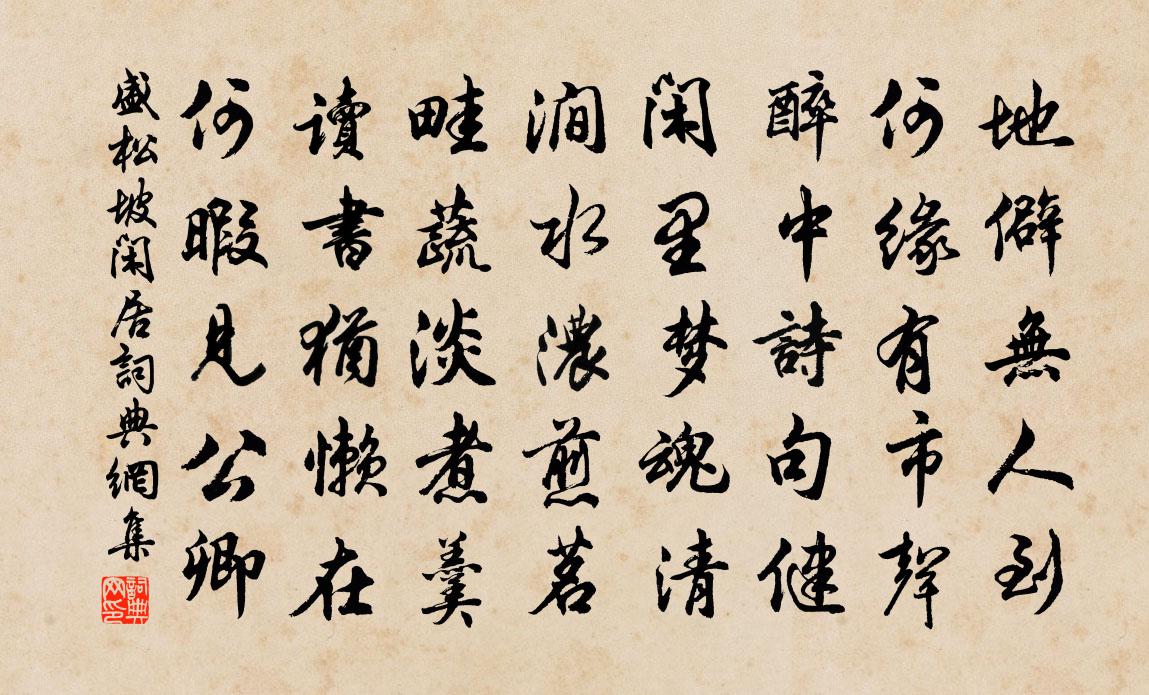 地僻無人到
何緣有市聲
醉中詩句健
闲里梦魂清
澗水濃煎茗
畦蔬淡煮羹
讀書猶懶在
何暇見公卿
盛松坡闲居詞典網集
詞典
网印